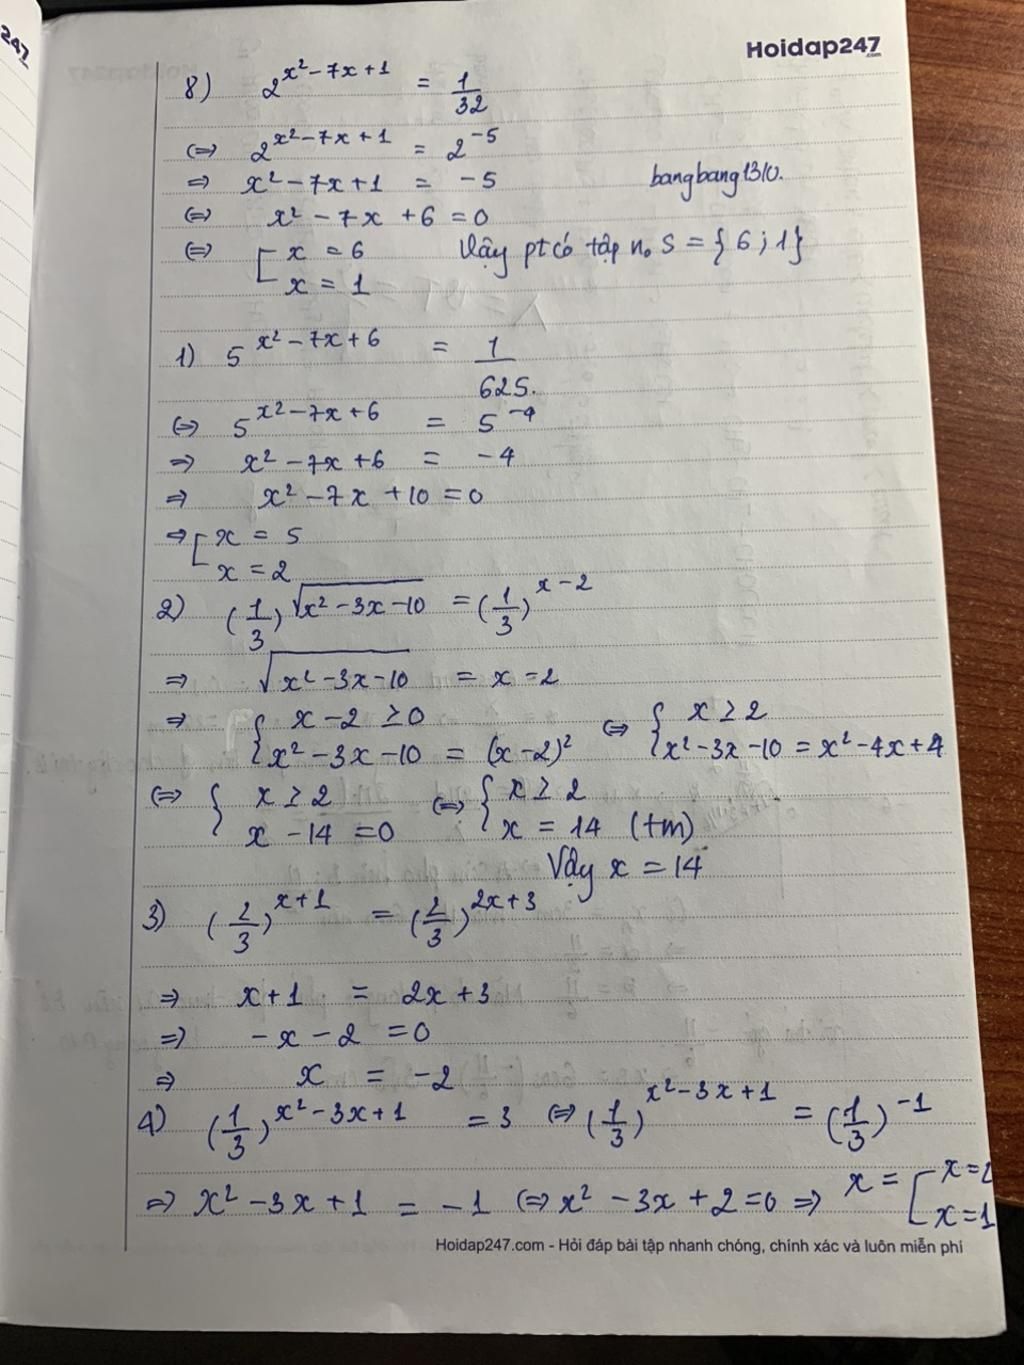 247
Hoidap247
.com
8) 2^{x²-7x+1} = 1/32
⇔ 2^{x²-7x+1} = 2^{-5}
⇒ x²-7x+1 = -5
bangbang1310.
⇔ x² - 7x + 6 = 0
⇔ [ x = 6 Vậy pt có tập n₀ S = { 6 ; 1}
x = 1
1) 5^{x²-7x+6} = 1/625.
⇔ 5^{x²-7x+6} = 5^{-4}
⇒ x² - 7x + 6 = -4
⇒ x² - 7x + 10 = 0
⇒ [ x = 5
x = 2
2) (1/3)^{√(x²-3x-10)} = (1/3)^{x-2}
⇒ √(x²-3x-10) = x - 2
⇒ { x-2 ≥ 0 ⇔ { x ≥ 2
x² - 3x - 10 = (x-2)² x²-3x-10 = x²-4x+4
⇔ { x ≥ 2 ⇔ { x ≥ 2
x - 14 = 0 x = 14 (tm)
Vậy x = 14
3) (2/3)^{x+1} = (2/3)^{2x+3}
⇒ x+1 = 2x+3
⇒ -x - 2 = 0
⇒ x = -2
4) (1/3)^{x²-3x+1} = 3 ⇔ (1/3)^{x²-3x+1} = (1/3)^{-1}
⇒ x² - 3x + 1 = -1 ⇔ x² - 3x + 2 = 0 ⇒ x = [ x=2
x=1
Hoidap247.com - Hỏi đáp bài tập nhanh chóng, chính xác và luôn miễn phí